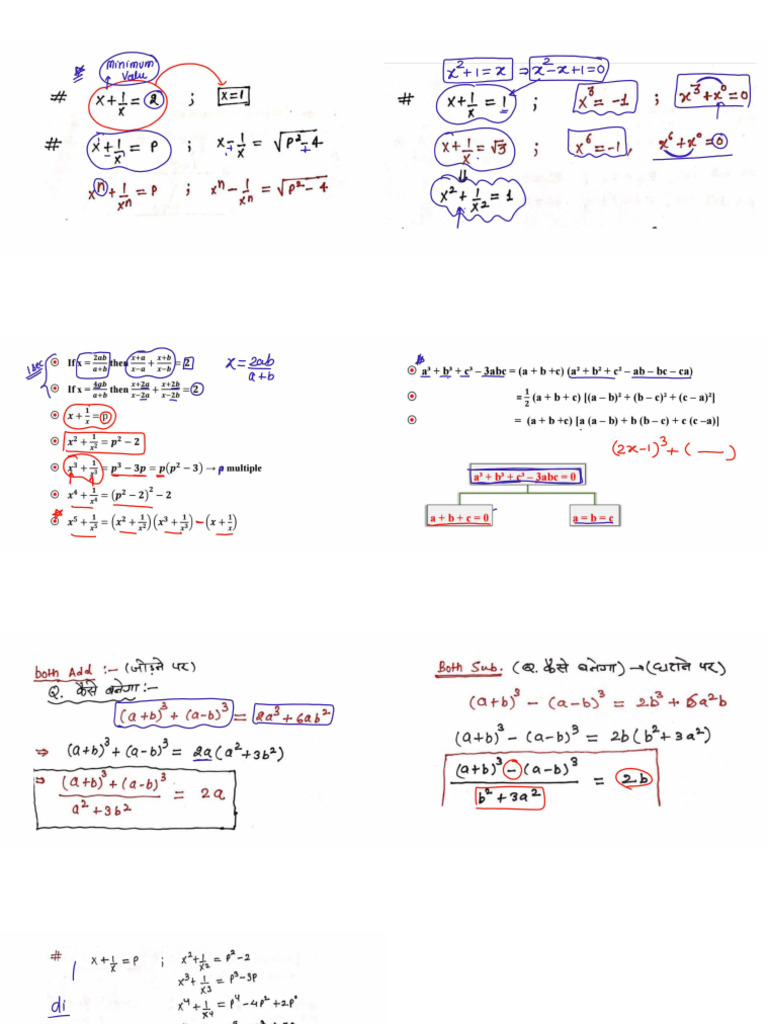 Minimum Value
# x + 1/x = 2 ; x=1
# x + 1/x = P ; x - 1/x = √(P²-4)
xⁿ + 1/xⁿ = P ; xⁿ - 1/xⁿ = √(P²-4)
x²+1=x ⇒ x²-x+1=0
# x + 1/x = 1 ; x³ = -1 ; x³+x⁰=0
x + 1/x = √3 ; x⁶ = -1, x⁶+x⁰=0
⇓
x² + 1/x² = 1
1 sec
If x = 2ab/a+b then x+a/x−a + x+b/x−b = 2
x = 2ab/a+b
If x = 4ab/a+b then x+2a/x−2a + x+2b/x−2b = 2
x + 1/x = p
x² + 1/x² = p² − 2
x³ + 1/x³ = p³ − 3p = p(p² − 3) → p multiple
x⁴ + 1/x⁴ = (p² − 2)² − 2
x⁵ + 1/x⁵ = (x² + 1/x²)(x³ + 1/x³) − (x + 1/x)
a³ + b³ + c³ – 3abc = (a + b +c) (a² + b² + c² – ab – bc – ca)
= 1/2 (a + b + c) [(a – b)² + (b – c)² + (c – a)²]
= (a + b +c) [a (a – b) + b (b – c) + c (c –a)]
(2x-1)³ + ( — )
a³ + b³ + c³ – 3abc = 0
a + b + c = 0 a = b = c
both Add :- (जोड़ने पर)
Q. कैसे बनेगा :-
(a+b)³ + (a-b)³ = 2a³ + 6ab²
⇒ (a+b)³ + (a-b)³ = 2a (a² + 3b²)
⇒ (a+b)³ + (a-b)³ / a² + 3b² = 2a
Both Sub. (Q. कैसे बनेगा) → (घटाने पर)
(a+b)³ - (a-b)³ = 2b³ + 6a²b
(a+b)³ - (a-b)³ = 2b (b² + 3a²)
(a+b)³ - (a-b)³ / b² + 3a² = 2b
# x + 1/x = P ; x² + 1/x² = P²-2
x³ + 1/x³ = P³-3P
x⁴ + 1/x⁴ = P⁴ - 4P² + 2P⁰
di